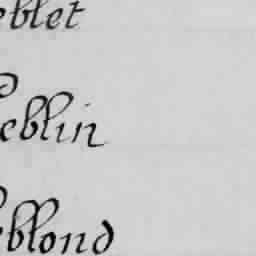 eblet
eblin
eblond